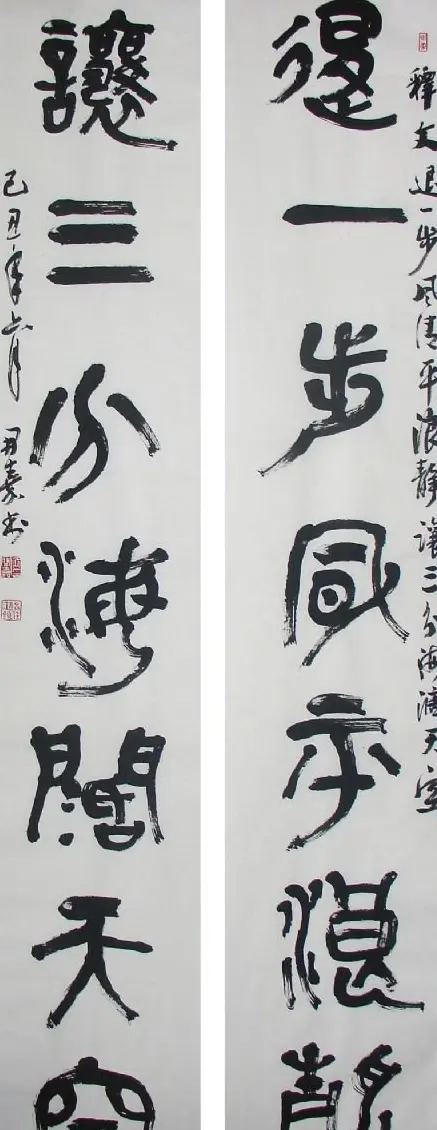 释文退一步风清平浪静讓三分海濶天空
退一步風平浪静
讓三分海闊天空
己丑年六月